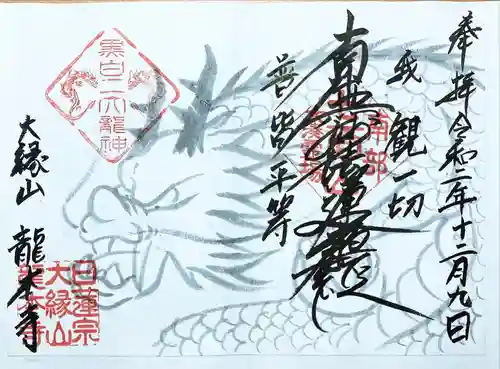 奉拝 令和二年十二月九日
我観一切
南無妙法蓮華経
普皆平等
黒白二大龍神
大縁山 龍本寺
日蓮宗
大縁山
龍本寺